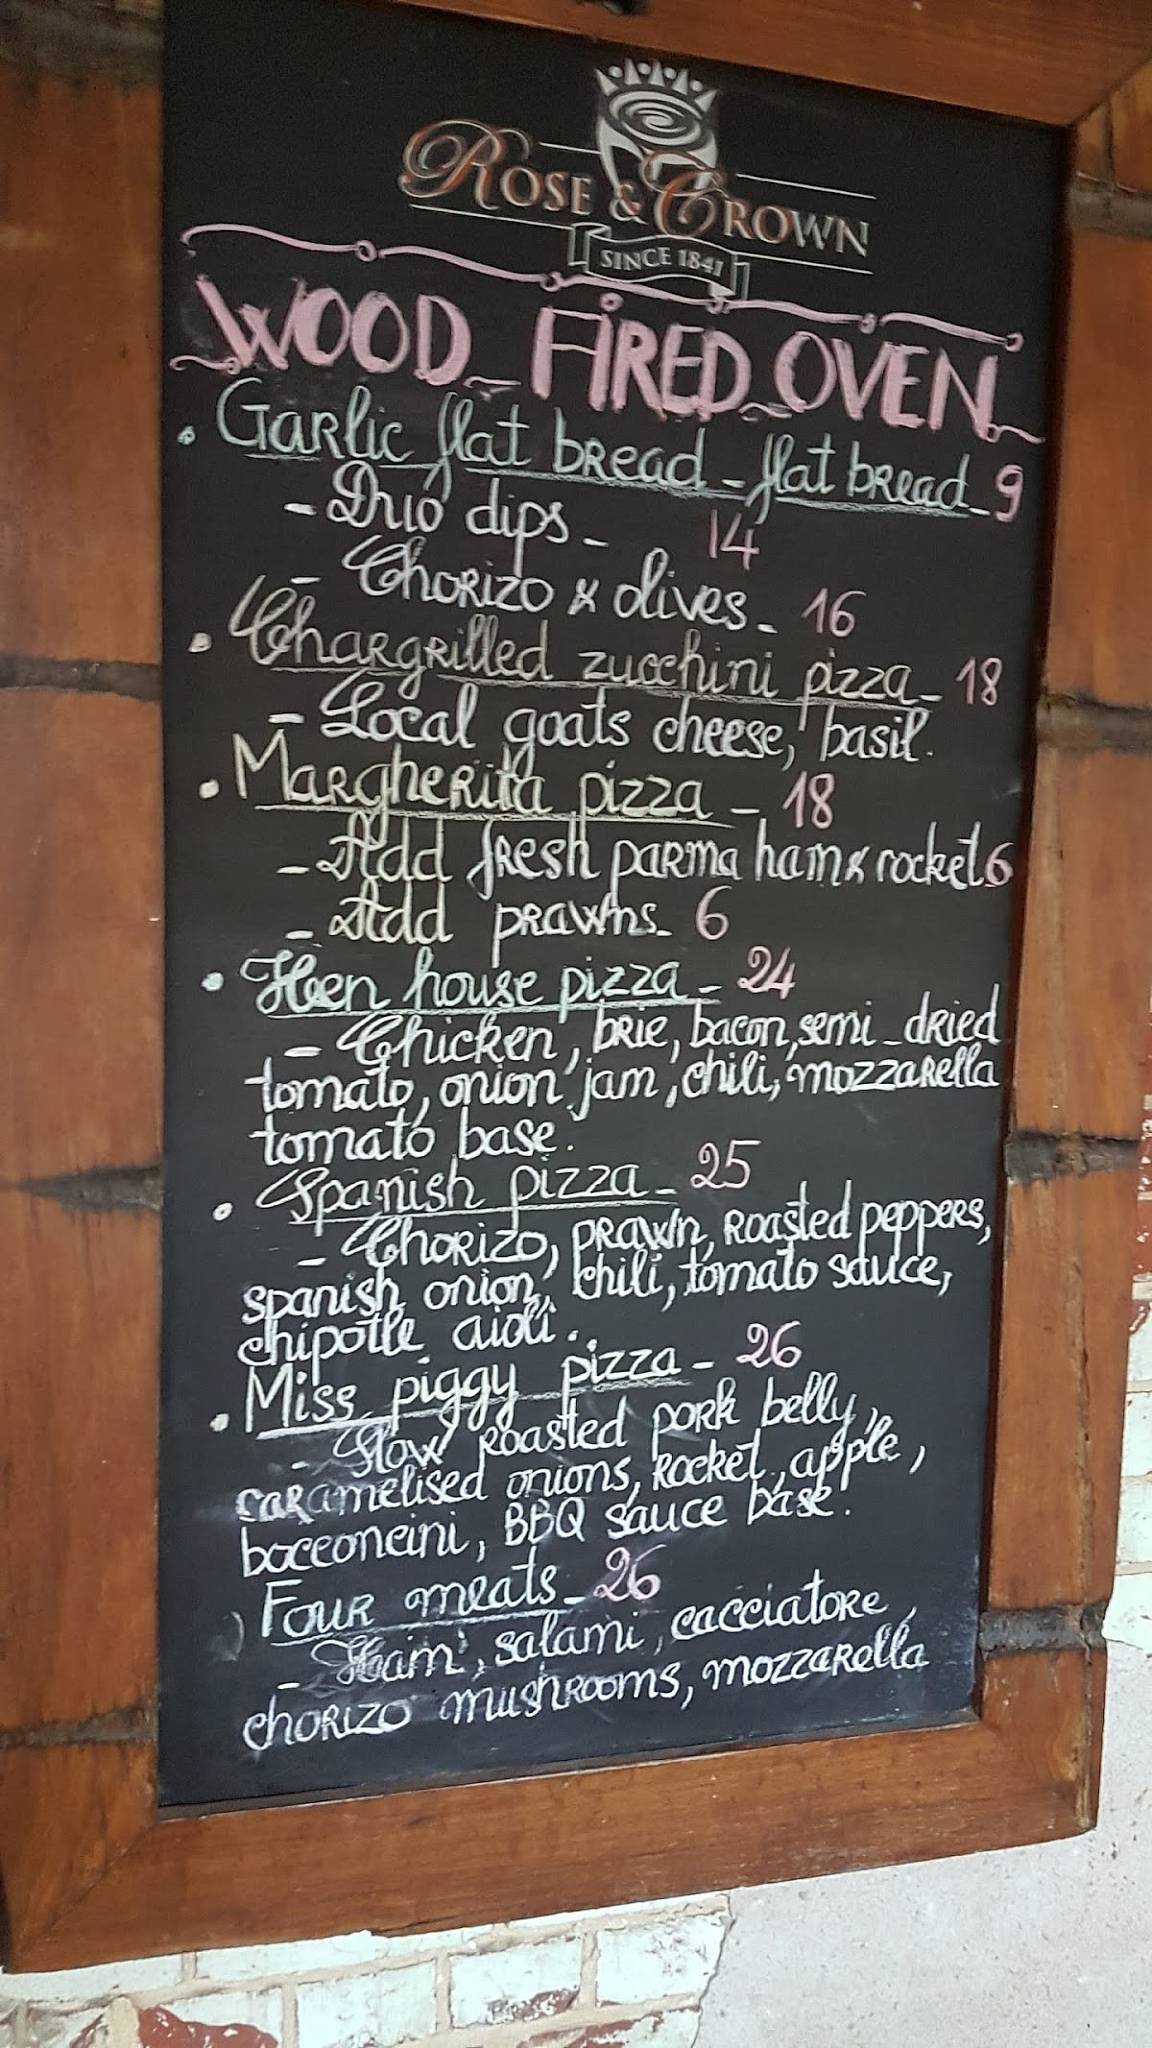 ROSE & CROWN
SINCE 1841
WOOD FIRED OVEN
• Garlic flat bread - flat bread - 9
- Duo dips - 14
- Chorizo & olives - 16
• Chargrilled zucchini pizza - 18
- Local goats cheese, basil.
• Margherita pizza - 18
- Add fresh parma ham & rocket 6
- Add prawns - 6
• Hen house pizza - 24
- Chicken, brie, bacon, semi-dried
tomato, onion jam, chili, mozzarella
tomato base.
• Spanish pizza - 25
- Chorizo, prawn, roasted peppers,
spanish onion, chili, tomato sauce,
chipotle aioli.
• Miss piggy pizza - 26
- Slow roasted pork belly,
caramelised onions, rocket, apple,
bocconcini, BBQ sauce base.
Four meats - 26
- Ham, salami, cacciatore,
chorizo mushrooms, mozzarella